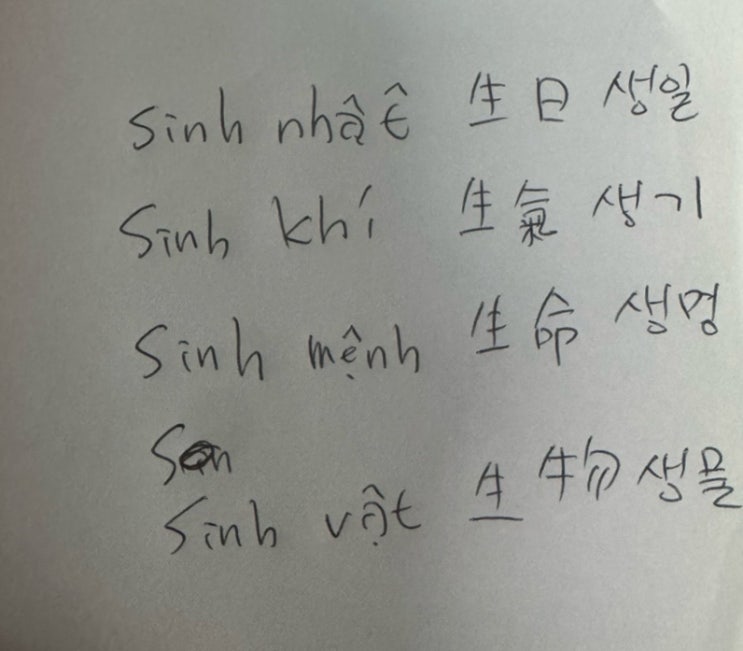 Sinh nhật 生日 생일
Sinh khí 生氣 생기
Sinh mệnh 生命 생명
Sinh vật 生物 생물